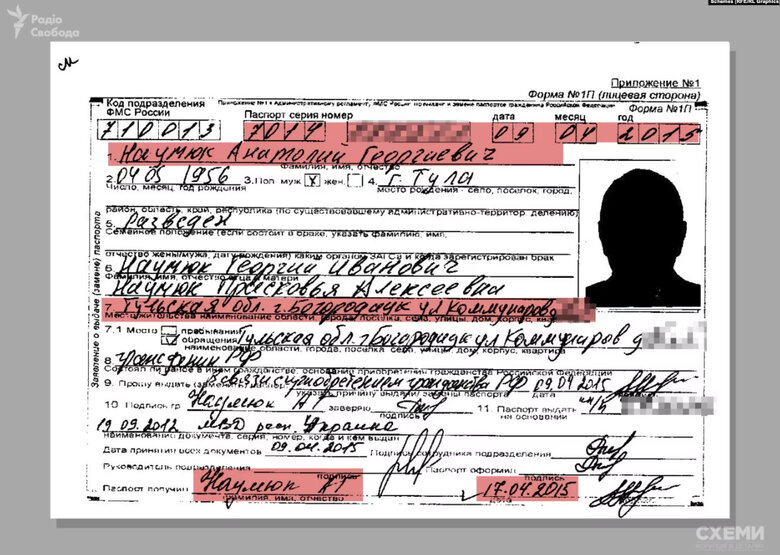 Schemes (RFE/RL Graphics)
Радіо Свобода
Приложение №1
Форма №1П (лицевая сторона)
Код подразделения ФМС России
Приложение №1 к Административному регламенту
Форма №1П
710013
Паспорт серия номер дата месяц год
7014 09 04 2015
1. Наумюк Анатолий Георгиевич
Фамилия, имя, отчество
2. 04 05 1956 3. Пол муж X жен. 4. г. Тула
Число, месяц, год рождения место рождения - село, поселок, город,
район, область, край, республика (по существовавшему административно-территор. делению)
5. Разведен
Семейное положение (если состоит в браке, указать фамилию, имя,
отчество жены/мужа, дату рождения) каким органом ЗАГСа и когда зарегистрирован брак
6. Наумюк Георгий Иванович
Фамилия, имя, отчество отца и матери
Наумюк Прасковья Алексеевна
7. Тульская обл. г. Богородицк ул Коммунаров
Место жительства наименование области, города, поселка, села, улицы, дом, корпус,
7.1 Место пребывания Тульская обл. г Богородицк ул Коммунаров д
обращения
наименование области, города, поселка, села, улицы, дом, корпус, квартира
8. гражданин РФ
Состоял ли ранее в ином гражданстве, основание приобретен гражданства Российской Федерации
9. Прошу выдать (заменить) в связи с приобретением гражданства РФ 09.04.2015
указать причину выдачи/ замены паспорта
10 Подпись гр Наумюк А заверяю 11. Паспорт выдать на основании
19.09.2012 МВД респ. Украина
наименование документа, серия, номер, когда и кем выдан
Дата принятия всех документов 09.04.2015 Подпись сотрудника подразделения
Руководитель подразделения Паспорт оформил
подпись подпись
Паспорт получил Наумюк АГ 17.04.2015
фамилия, имя, отчество дата
Заявление о выдаче (замене) паспорта
СХЕМИ